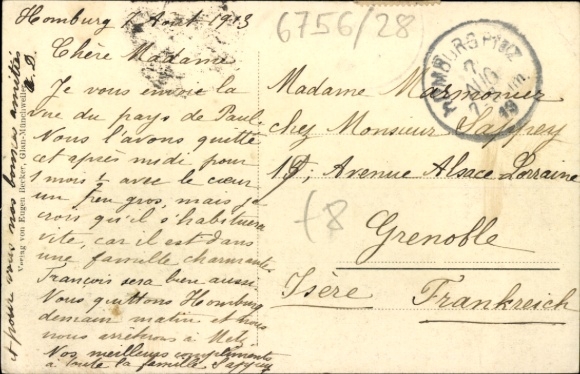 Homburg 1 Août 1913
Chère Madame
Je vous envoie la
vue du pays de Paul.
Nous l'avons quitté
cet après midi pour
1 mois ½ avec le cœur
un peu gros, mais je
crois qu'il s'habituera
vite, car il est dans
une famille charmante
François sera bien aussi.
Nous quittons Homburg
demain matin et nous
nous arrêtons à Metz
Nos meilleurs compliments
à toute la famille Sappey
et pour vous nos bonnes amitiés
Verlag von Eugen Becker, Glan-Münchweiler
6756/28
HOMBURG PFALZ
Madame Marmonier
chez Monsieur Sappey
15, Avenue Alsace Lorraine
Grenoble
Isère Frankreich
f8